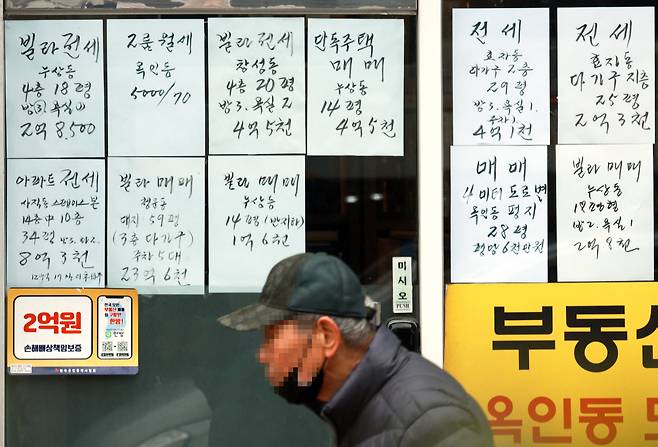 빌라전세
누상동
4층 18평
방③. 욕실①
2억 8,500
2룸월세
옥인동
5000/70
빌라전세
창성동
4층 20평
방3. 욕실 2
4억 5천
단독주택
매매
누상동
14평
4억 5천
전세
효자동
다가구 2층
29평
방3. 욕실 1.
주차 1
4억 1천
전세
효자동
다가구 지층
25평
2억 3천
아파트 전세
사직동 스페이스본
14층中 10층
34평
8억 3천
빌라 매매
청운동
대지 59평
(3층 다가구)
주차 5대
23억 6천
빌라 매매
누상동
14평 (반지하)
1억 6천
매매
4미터 도로변
옥인동 평지
28평
평당 6천만원
빌라 매매
누상동
방2. 욕실 1
2억 8천
2억원
손해배상책임보증
한방
미시오
PUSH
부동산
옥인동